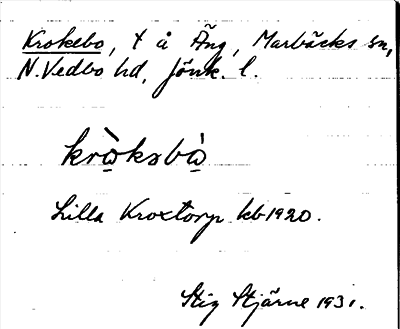 Krokebo, t å Äng, Marbäcks sn,
N. Vedbo hd, Jönk. l.
krò̲ksbò̲
Lilla Kroxtorp kb 1920.
Stig Stjärne 1931.